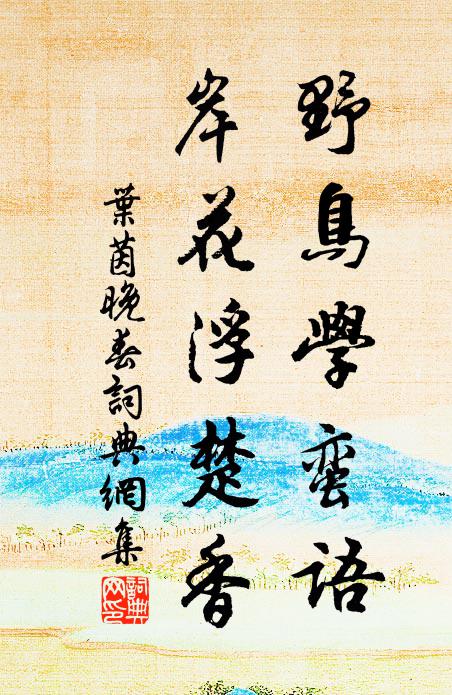 野鳥學蛮語
岸花浮楚香
葉茵晚春詞典網集
詞典網印